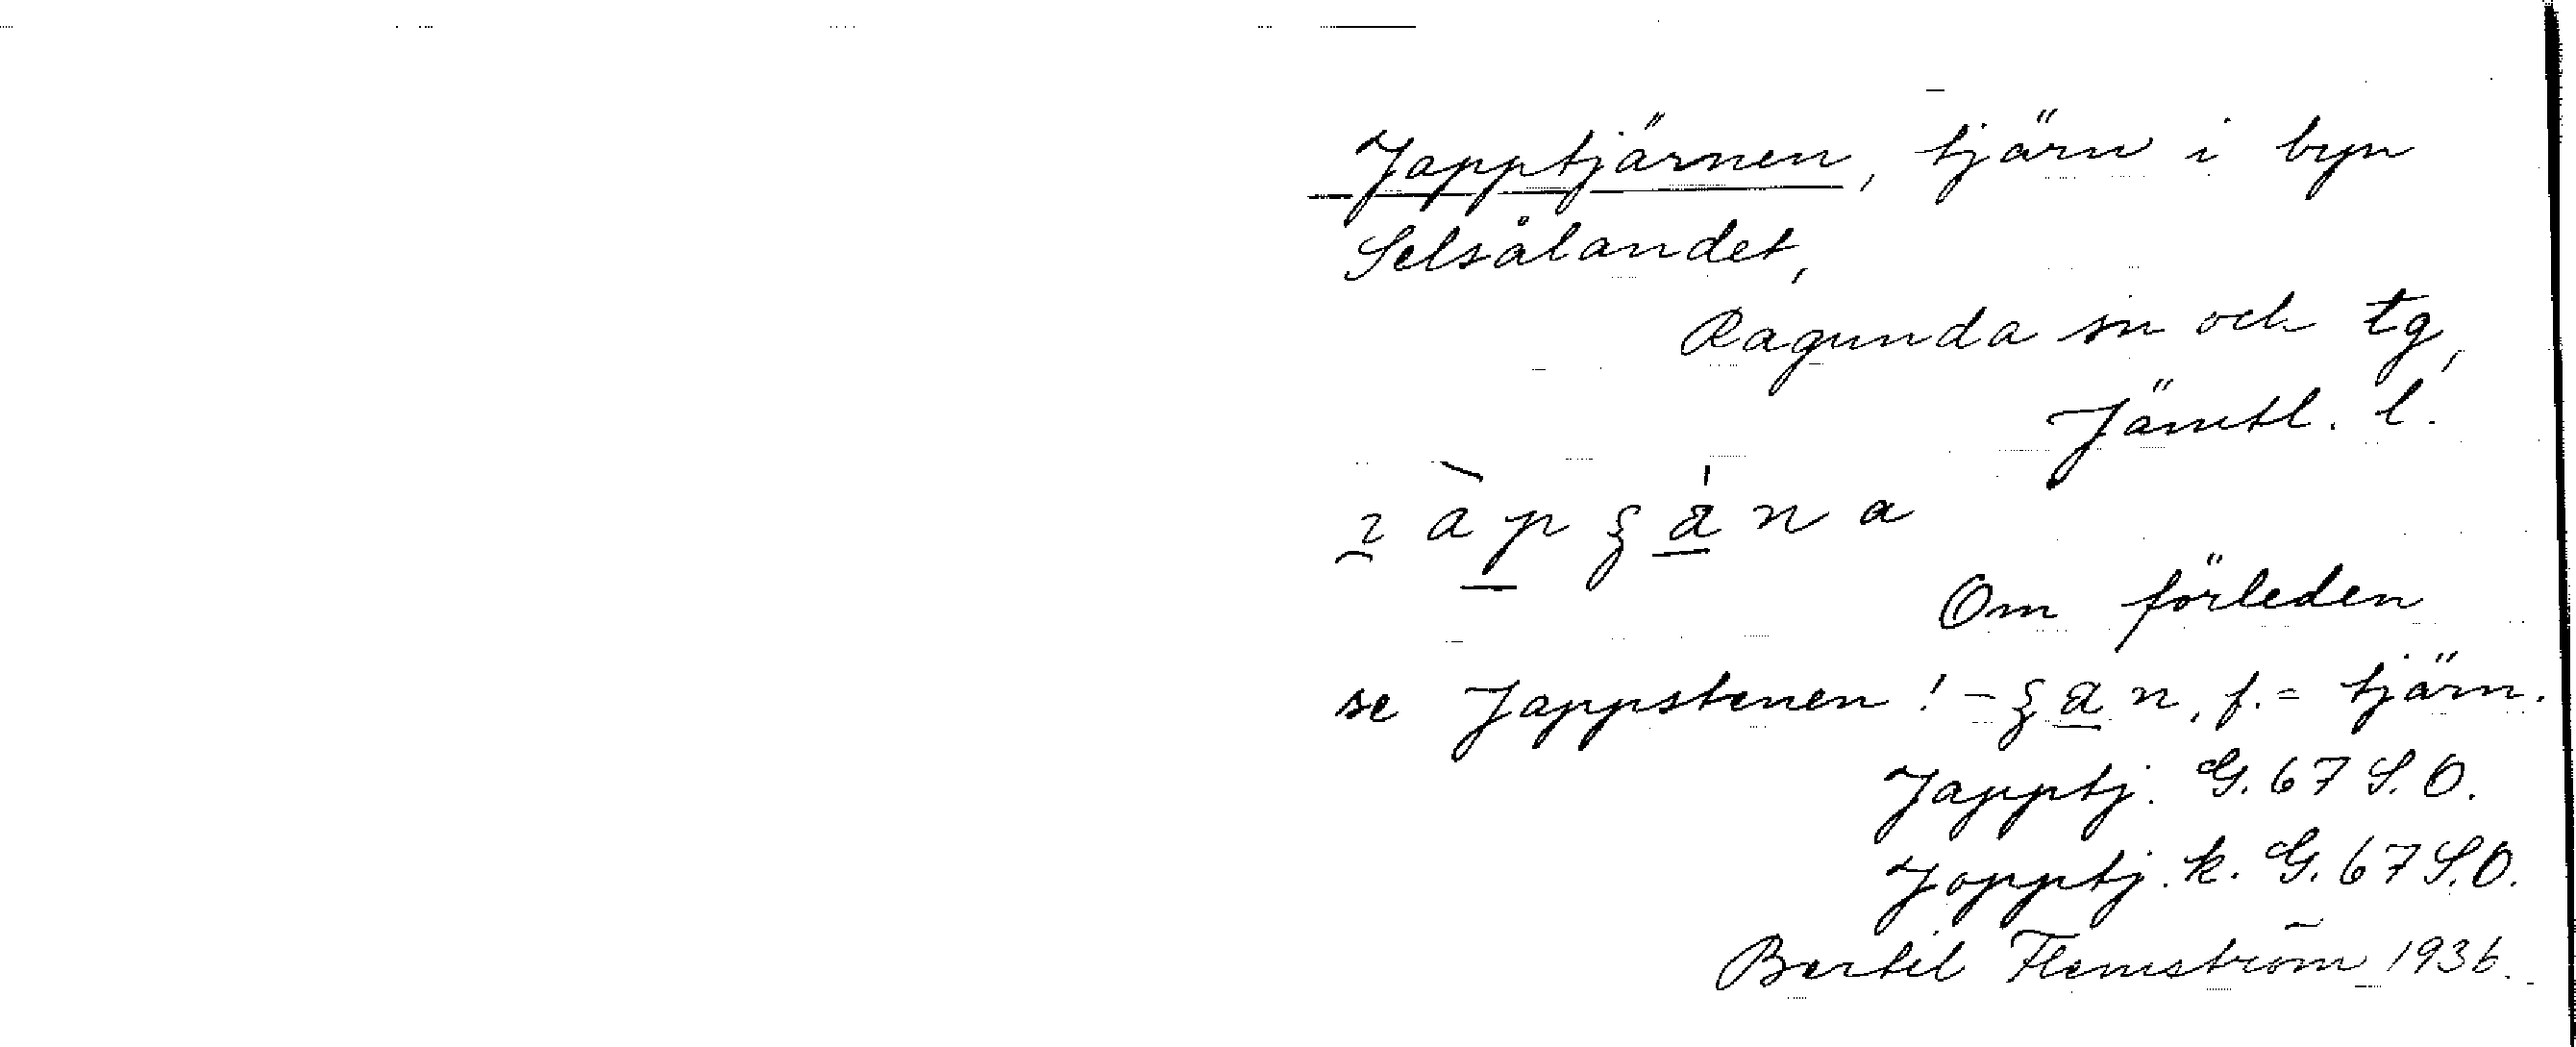 Japptjärnen, tjärn i byn
Selsålandet,
Ragunda sn och tg,
Jämtl. l.
Om förleden
se Jappstenen! - , f. = tjärn.
Japptj. G. 67 S.O.
Jopptj. k. G. 67 S.O.
Bertil Flemström 1936.